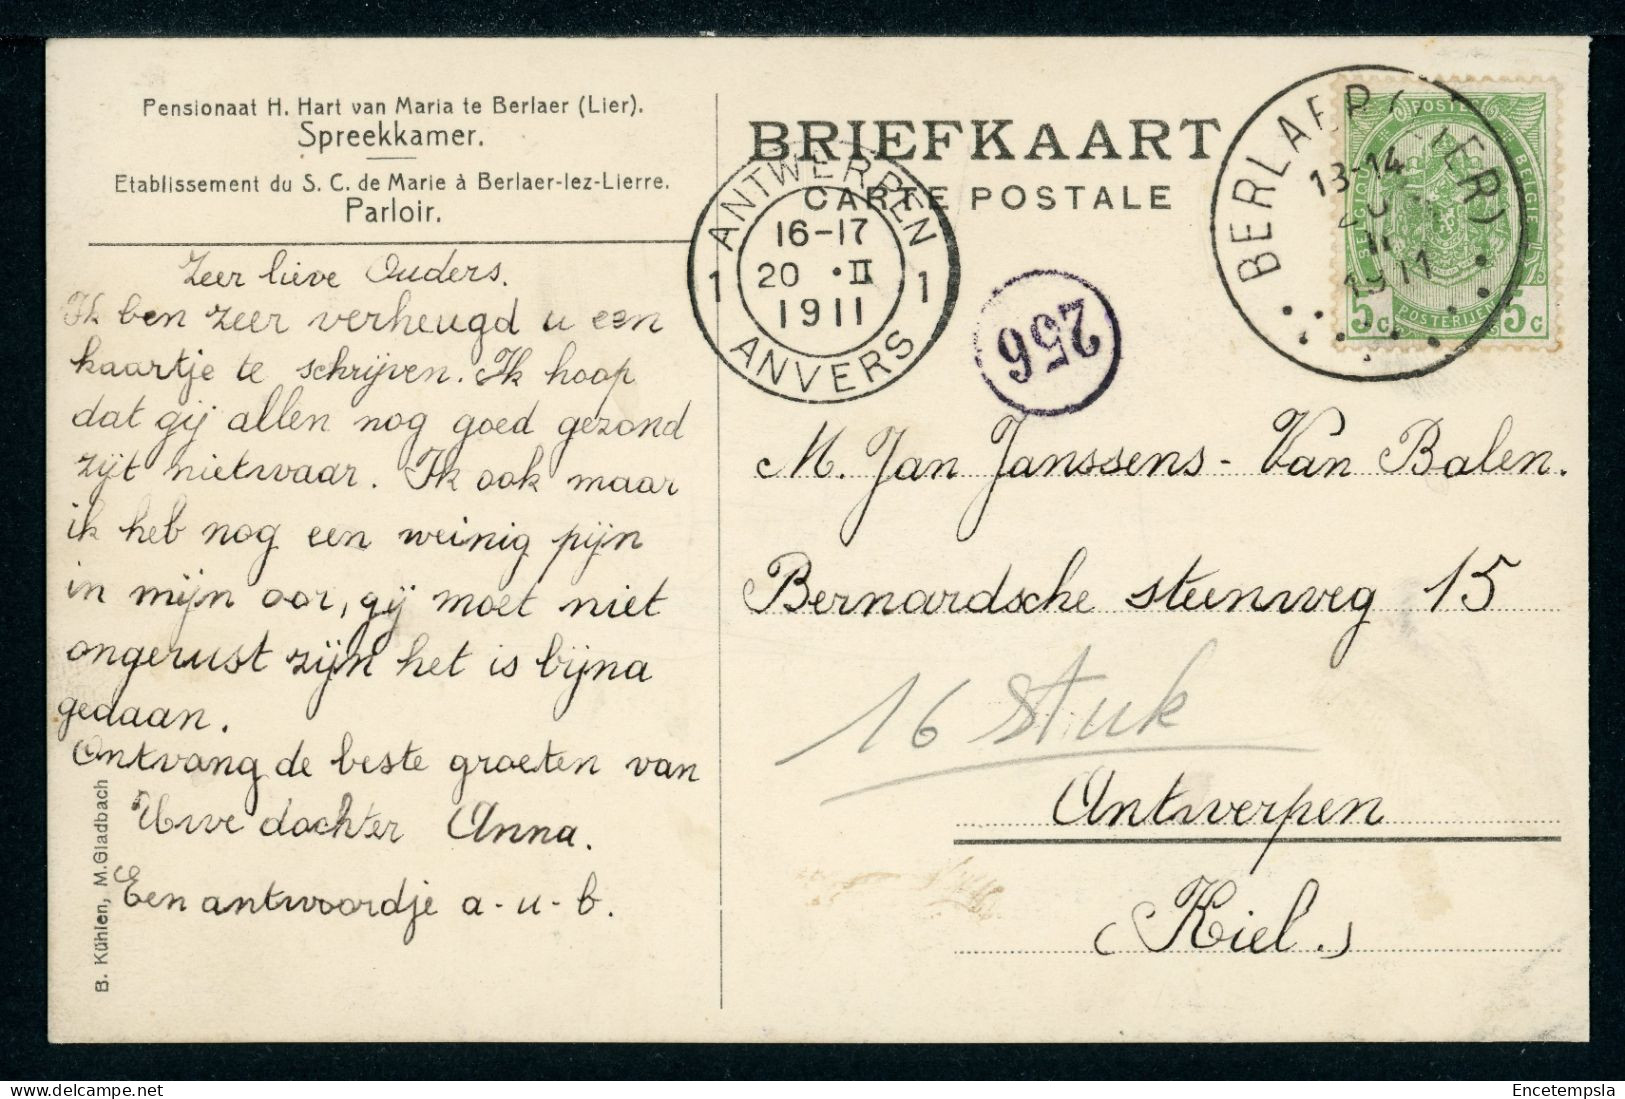 Pensionaat H. Hart van Maria te Berlaer (Lier).
Spreekkamer.
Etablissement du S. C. de Marie à Berlaer-lez-Lierre.
Parloir.
Zeer lieve Ouders.
Ik ben zeer verheugd u een
kaartje te schrijven. Ik hoop
dat gij allen nog goed gezond
zijt nietwaar. Ik ook maar
ik heb nog een weinig pijn
in mijn oor, gij moet niet
ongerust zijn het is bijna
gedaan.
Ontvang de beste groeten van
Uwe dochter Anna.
Een antwoordje a-u-b.
B. Kühlen, M. Gladbach
BRIEFKAART
CARTE POSTALE
ANTWERPEN
1 16-17 1
20 • II
1911
ANVERS
256
BERLAER (LIER)
13-14
1911
POSTES
BELGIQUE BELGIE
5c POSTERIJEN 5c
M. Jan Janssens - Van Balen.
Bernardsche steenweg 15
16 Stuk
Antwerpen
(Kiel.)
Encetempsla